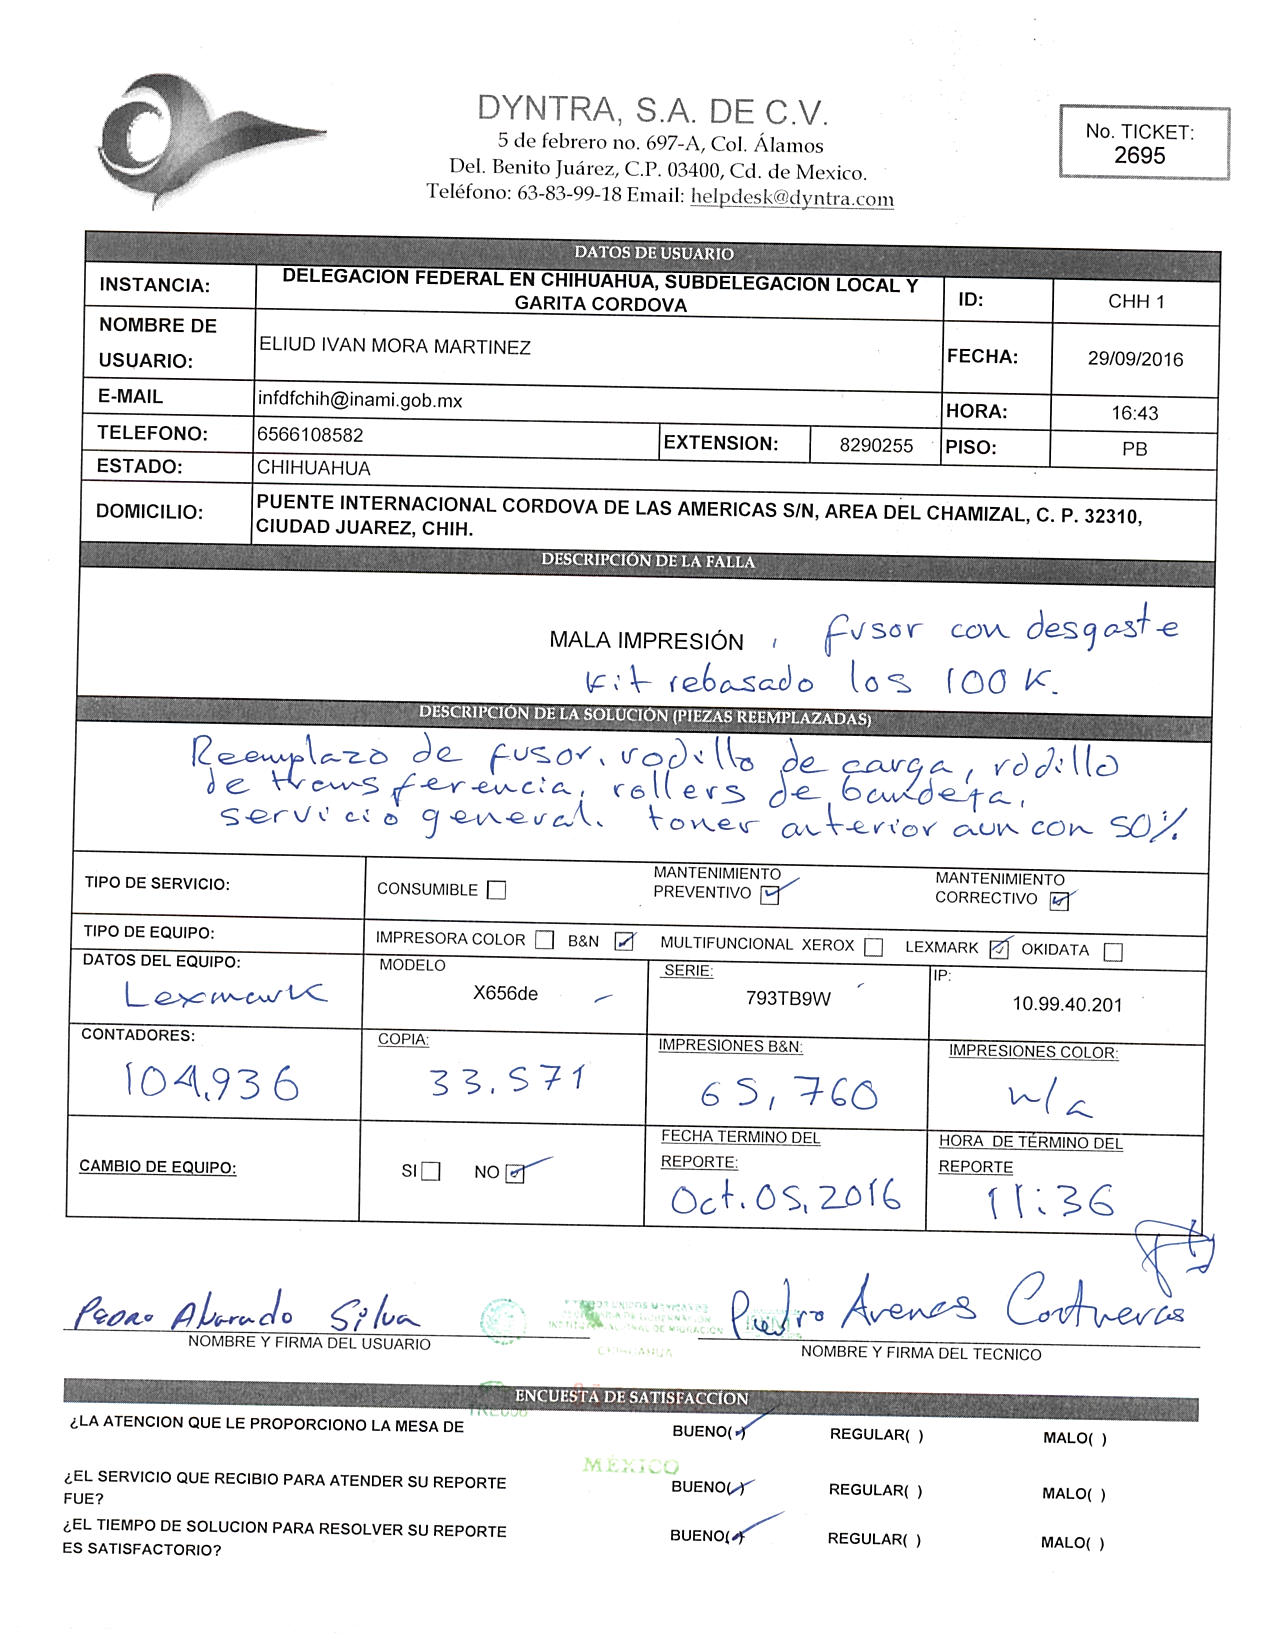 DYNTRA, S.A. DE C.V.
5 de febrero no. 697-A, Col. Álamos
Del. Benito Juárez, C.P. 03400, Cd. de Mexico.
Teléfono: 63-83-99-18 Email: helpdesk@dyntra.com
No. TICKET:
2695
DATOS DE USUARIO
INSTANCIA: DELEGACION FEDERAL EN CHIHUAHUA, SUBDELEGACION LOCAL Y GARITA CORDOVA ID: CHH 1
NOMBRE DE USUARIO: ELIUD IVAN MORA MARTINEZ FECHA: 29/09/2016
E-MAIL infdfchih@inami.gob.mx HORA: 16:43
TELEFONO: 6566108582 EXTENSION: 8290255 PISO: PB
ESTADO: CHIHUAHUA
DOMICILIO: PUENTE INTERNACIONAL CORDOVA DE LAS AMERICAS S/N, AREA DEL CHAMIZAL, C. P. 32310,
CIUDAD JUAREZ, CHIH.
DESCRIPCIÓN DE LA FALLA
MALA IMPRESIÓN , fusor con desgaste
kit rebasado los 100 K.
DESCRIPCIÓN DE LA SOLUCIÓN (PIEZAS REEMPLAZADAS)
Reemplazo de fusor, rodillo de carga, rodillo
de transferencia, rollers de bandeja,
servicio general. toner anterior aun con 50%
TIPO DE SERVICIO: CONSUMIBLE MANTENIMIENTO PREVENTIVO MANTENIMIENTO CORRECTIVO
TIPO DE EQUIPO: IMPRESORA COLOR B&N MULTIFUNCIONAL XEROX LEXMARK OKIDATA
DATOS DEL EQUIPO: MODELO SERIE: IP:
Lexmark X656de 793TB9W 10.99.40.201
CONTADORES: COPIA: IMPRESIONES B&N: IMPRESIONES COLOR:
104,936 33.571 65,760 n/a
CAMBIO DE EQUIPO: SI NO FECHA TERMINO DEL REPORTE: HORA DE TÉRMINO DEL REPORTE
Oct. 05, 2016 11:36
Pedro Alvarado Silva Pedro Arenas Contreras
NOMBRE Y FIRMA DEL USUARIO NOMBRE Y FIRMA DEL TECNICO
CHIHUAHUA
ENCUESTA DE SATISFACCIÓN
¿LA ATENCION QUE LE PROPORCIONO LA MESA DE BUENO( ) REGULAR( ) MALO( )
MÉXICO
¿EL SERVICIO QUE RECIBIO PARA ATENDER SU REPORTE FUE? BUENO( ) REGULAR( ) MALO( )
¿EL TIEMPO DE SOLUCION PARA RESOLVER SU REPORTE ES SATISFACTORIO? BUENO( ) REGULAR( ) MALO( )